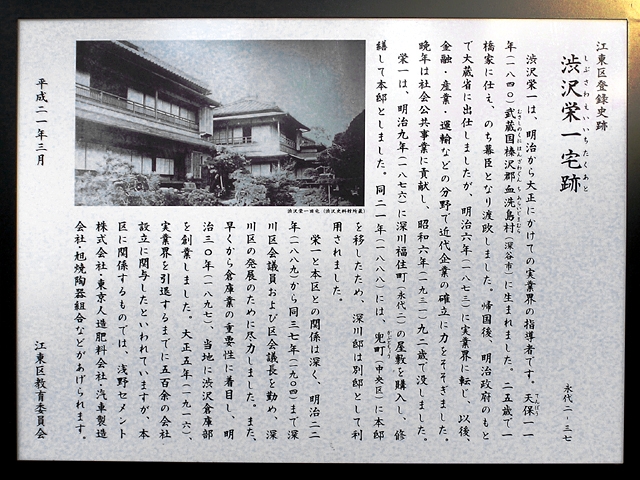 江東区登録史跡
渋沢栄一宅跡
しぶさわえいいちたくあと
永代二-三七
渋沢栄一は、明治から大正にかけての実業界の指導者です。天保一一
てんぽう
年(一八四〇)武蔵国榛沢郡血洗島村(深谷市)に生まれました。二五歳で一
むさしのくにはんざわぐんちあらいじまむら
橋家に仕え、のち幕臣となり渡欧しました。帰国後、明治政府のもと
で大蔵省に出仕しましたが、明治六年(一八七三)に実業界に転じ、以後、
金融・産業・運輸などの分野で近代企業の確立に力をそそぎました。
晩年は社会公共事業に貢献し、昭和六年(一九三一)九二歳で没しました。
栄一は、明治九年(一八七六)に深川福住町(永代二)の屋敷を購入し、修
繕して本邸としました。同二一年(一八八八)には、兜町(中央区)に本邸
かぶとちょう
を移したため、深川邸は別邸として利
用されました。
栄一と本区との関係は深く、明治二二
年(一八八九)から同三七年(一九〇四)まで深
川区会議員および区会議長を勤め、深
川区の発展のために尽力しました。また、
早くから倉庫業の重要性に着目し、明
治三〇年(一八九七)、当地に渋沢倉庫部
を創業しました。大正五年(一九一六)、
実業界を引退するまでに五百余の会社
設立に関与したといわれていますが、本
区に関係するものでは、浅野セメント
株式会社・東京人造肥料会社・汽車製造
会社・旭焼陶器組合などがあげられます。
渋沢栄一旧宅(渋沢史料館所蔵)
平成二一年三月
江東区教育委員会